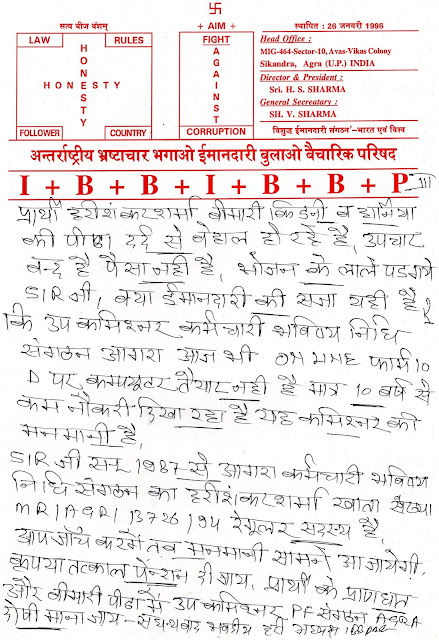 सत्यं बीज वंशम्
卐
+ AIM +
स्थापित : 26 जनवरी 1996
LAW
RULES
HONESTY
HONESTY
FOLLOWER
COUNTRY
FIGHT
AGAINST
CORRUPTION
Head Office :
MIG-464-Sector-10, Avas-Vikas Colony
Sikandra, Agra (U.P.) INDIA
Director & President :
Sri. H. S. SHARMA
General Secreatary :
SH. V. SHARMA
विशुद्ध ईमानदारी संगठन"-भारत एवं विश्व
अन्तर्राष्ट्रीय भ्रष्टाचार भगाओ ईमानदारी बुलाओ वैचारिक परिषद
I + B + B + I + B + B + P III
प्रार्थी हरीशंकरशर्मा बीमारी किडनी व हार्निया
की पीड़ा दर्द से बेहाल हो रहे है, उपचार
बन्द है पैसा नही है, भोजन के लाले पड गये
SIR जी, क्या ईमानदारी की सजा यही है
कि उप कमिश्नर कर्मचारी भविष्य निधि
संगठन आगरा आज भी ON LINE फार्म 10
D पर कम्प्यूटर तैयार नही है मात्र 10 वर्ष से
कम नौकरी दिखा रहा है यह कमिश्नर की
मनमानी है,
SIR जी सन् 1987 से आगरा कर्मचारी भविष्य
निधि संगठन का हरीशंकरशर्मा खाता संख्या
MR/AGR/13726/94 रेगूलर सदस्य है,
आप जाँच करेगें तब मनमानी सामने आ जायेगी,
कृपया तत्काल पेन्शन दी जाय, प्रार्थी के प्राणघात
और बीमारी पीडा में उप कमिश्नर PF संगठन AGRA
दोषी माना जाय - सधन्यवाद भवदीय हरी